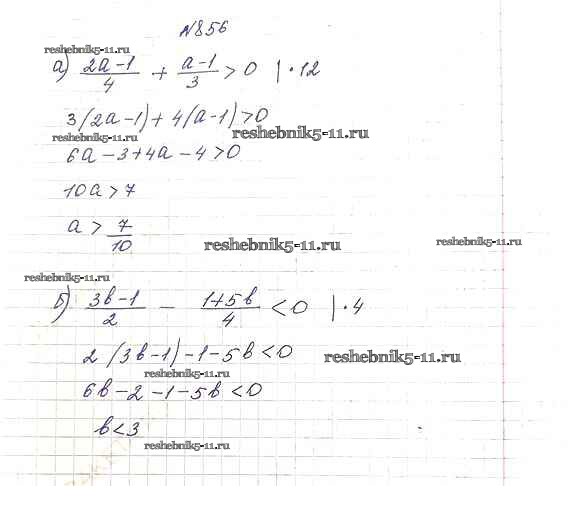 №856
reshebnik5-11.ru
а) (2a-1)/4 + (a-1)/3 > 0 | · 12
3(2a-1)+4(a-1)>0
reshebnik5-11.ru
reshebnik5-11.ru
6a-3+4a-4>0
10a>7
a > 7/10
reshebnik5-11.ru
reshebnik5-11.ru
reshebnik5-11.ru
б) (3b-1)/2 - (1+5b)/4 < 0 | · 4
2(3b-1)-1-5b<0
reshebnik5-11.ru
reshebnik5-11.ru
6b-2-1-5b<0
b<3
reshebnik5-11.ru